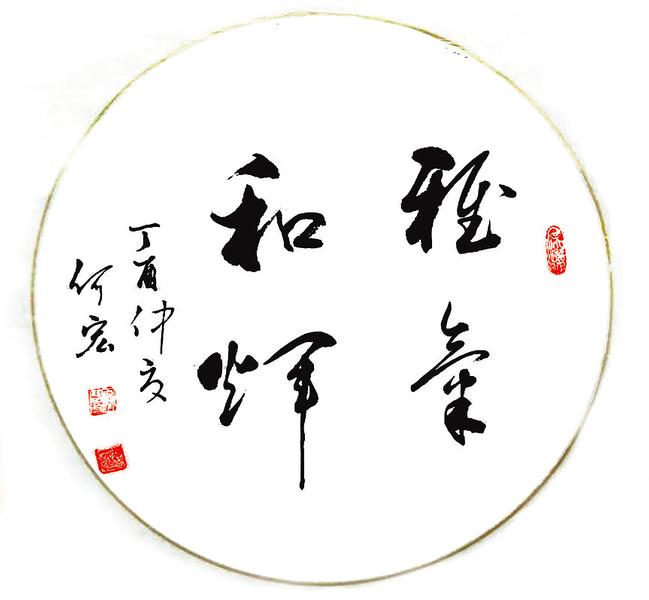 雅氣
和煇
丁酉仲夏
何宏